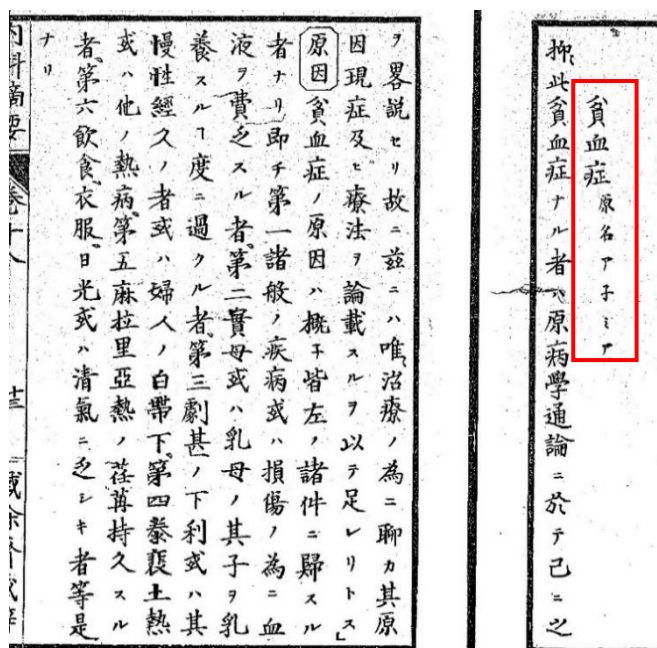 貧血症原名ア子ミア
抑此貧血症ナル者ハ原病學通論ニ於テ已ニ之
ヲ畧説セリ故ニ茲ニハ唯治療ノ為ニ聊カ其原
因現症及ヒ療法ヲ論載スルヲ以テ足レリトス」
原因 貧血症ノ原因ハ概子皆左ノ諸件ニ歸スル
者ナリ即チ第一諸般ノ疾病或ハ損傷ノ為ニ血
液ヲ費乏スル者、第二實母或ハ乳母ノ其子ヲ乳
養スルヿ度ニ過クル者、第三劇甚ノ下利或ハ其
慢性經久ノ者或ハ婦人ノ白帶下、第四泰襃土熱
或ハ他ノ熱病、第五麻拉里亞熱ノ荏苒持久スル
者、第六飲食、衣服、日光或ハ清氣ニ乏シキ者等是
ナリ
内科摘要 卷十八